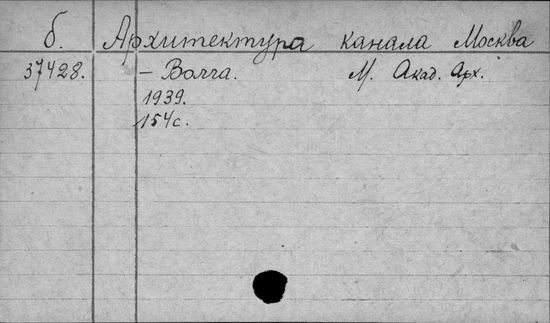 б. Архитектура канала Москва
37428. – Волга. М. Акад. Арх.
1939.
154с.